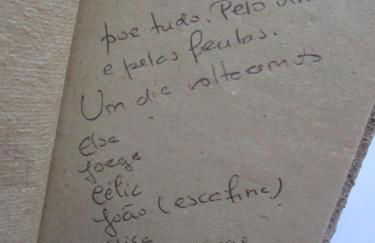 por tudo. Pelo
e pelas frutas.
Um dia voltaremos
Elsa
Jorge
Célia
João (escafine)